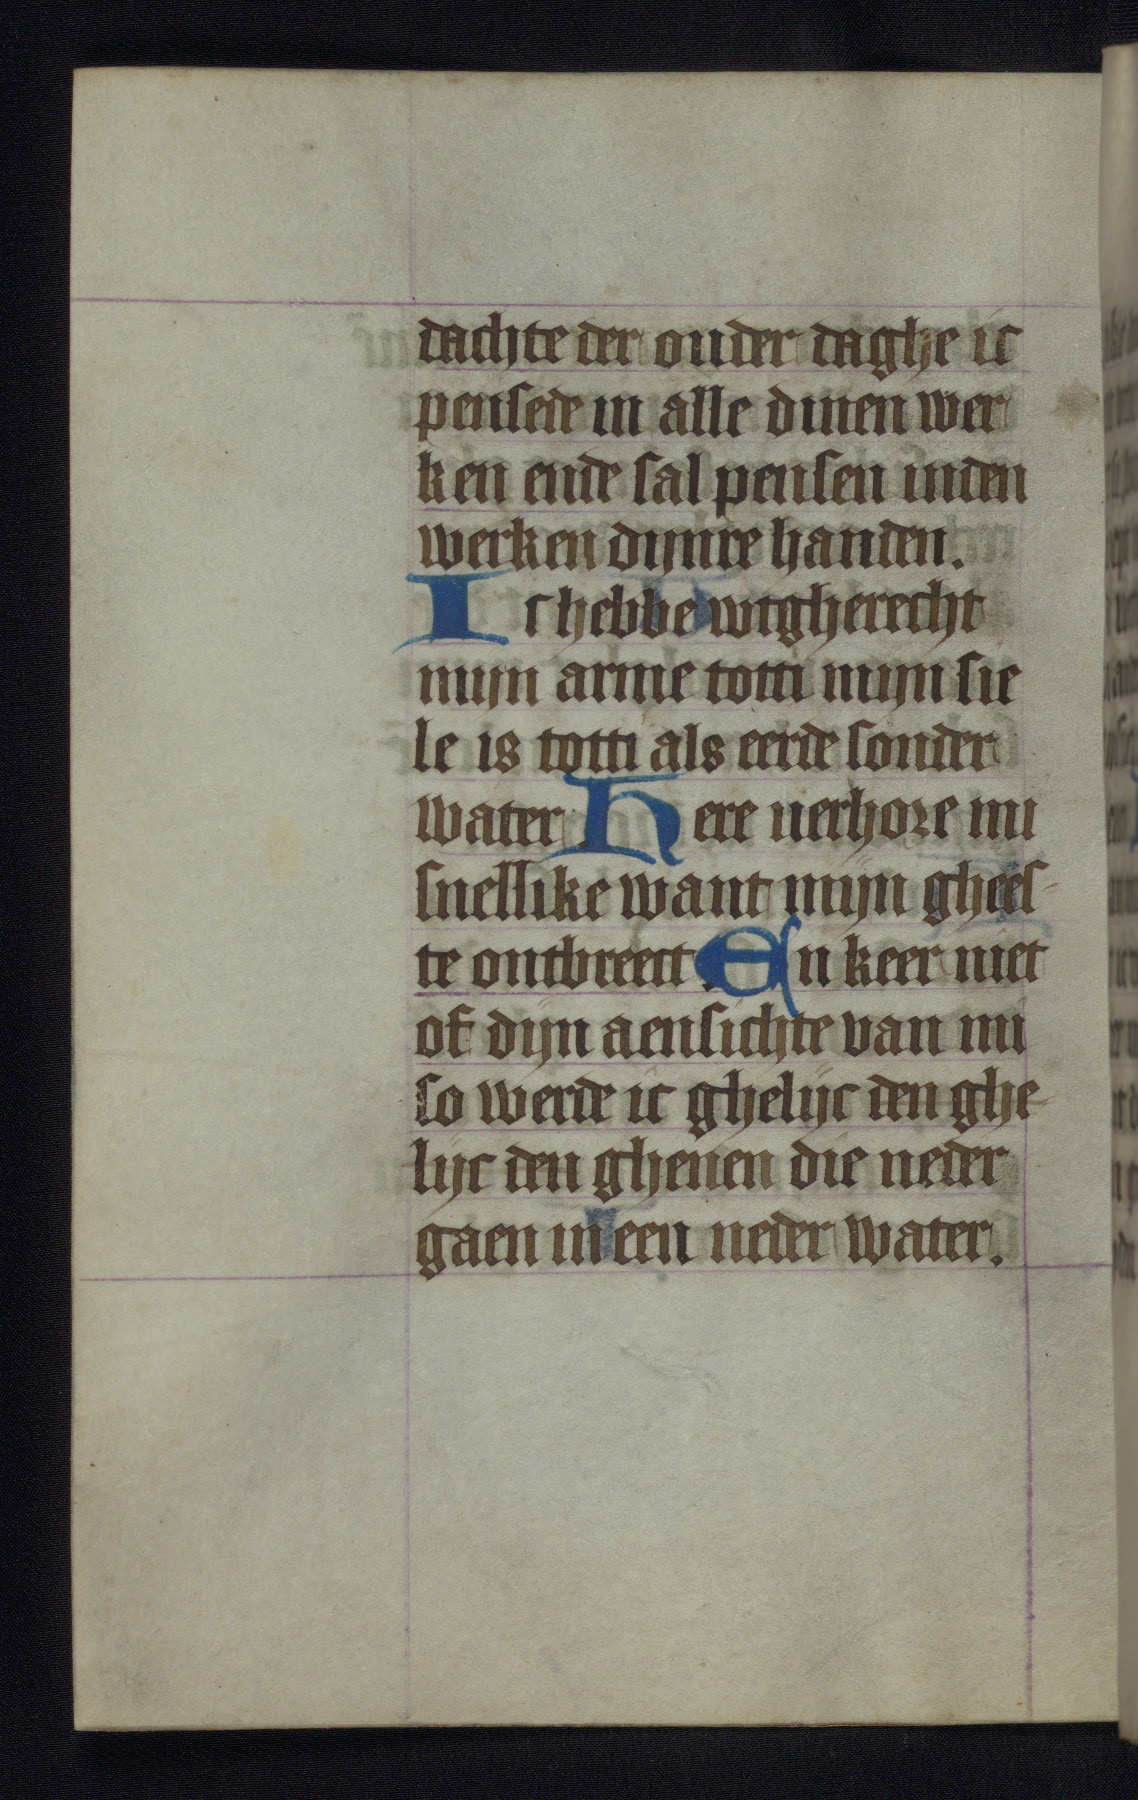 dachte der ouder daghe ic
pensede in alle dinen wer
ken ende sal pensen inden
werken dijnre handen.
Ic hebbe wtgherecht
mijn arme totti mijn sie
le is totti als eerde sonder
water Here verhore mi
snellike want mijn ghees
te ontbreect En keer niet
of dijn aensichte van mi
so werde ic ghelijc den ghe
lijc den ghenen die neder
gaen in een neder water.